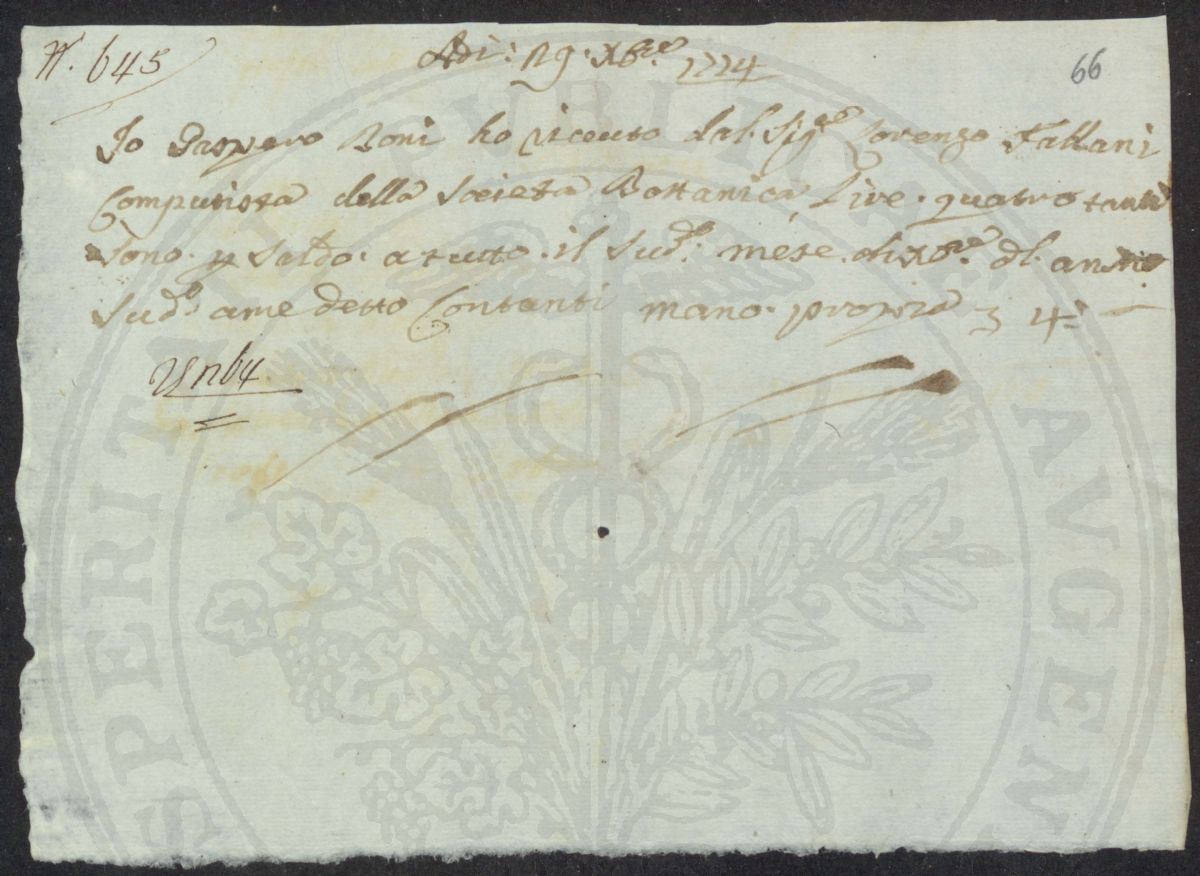 N. 645
Adi: 29. Xbre. 1774
66
Io Gaspero Roni ho riceuto dal Sigre Lorenzo Fallani
Computista della Società Bottanica Lire. quatro tanti
Sono. p Saldo. a tutto. il Sudo. mese di Xbre. dl. anno
Sudo ame detto Contanti mano. propria 4
PROSPERITATI PVBLICAE AVGENDAE